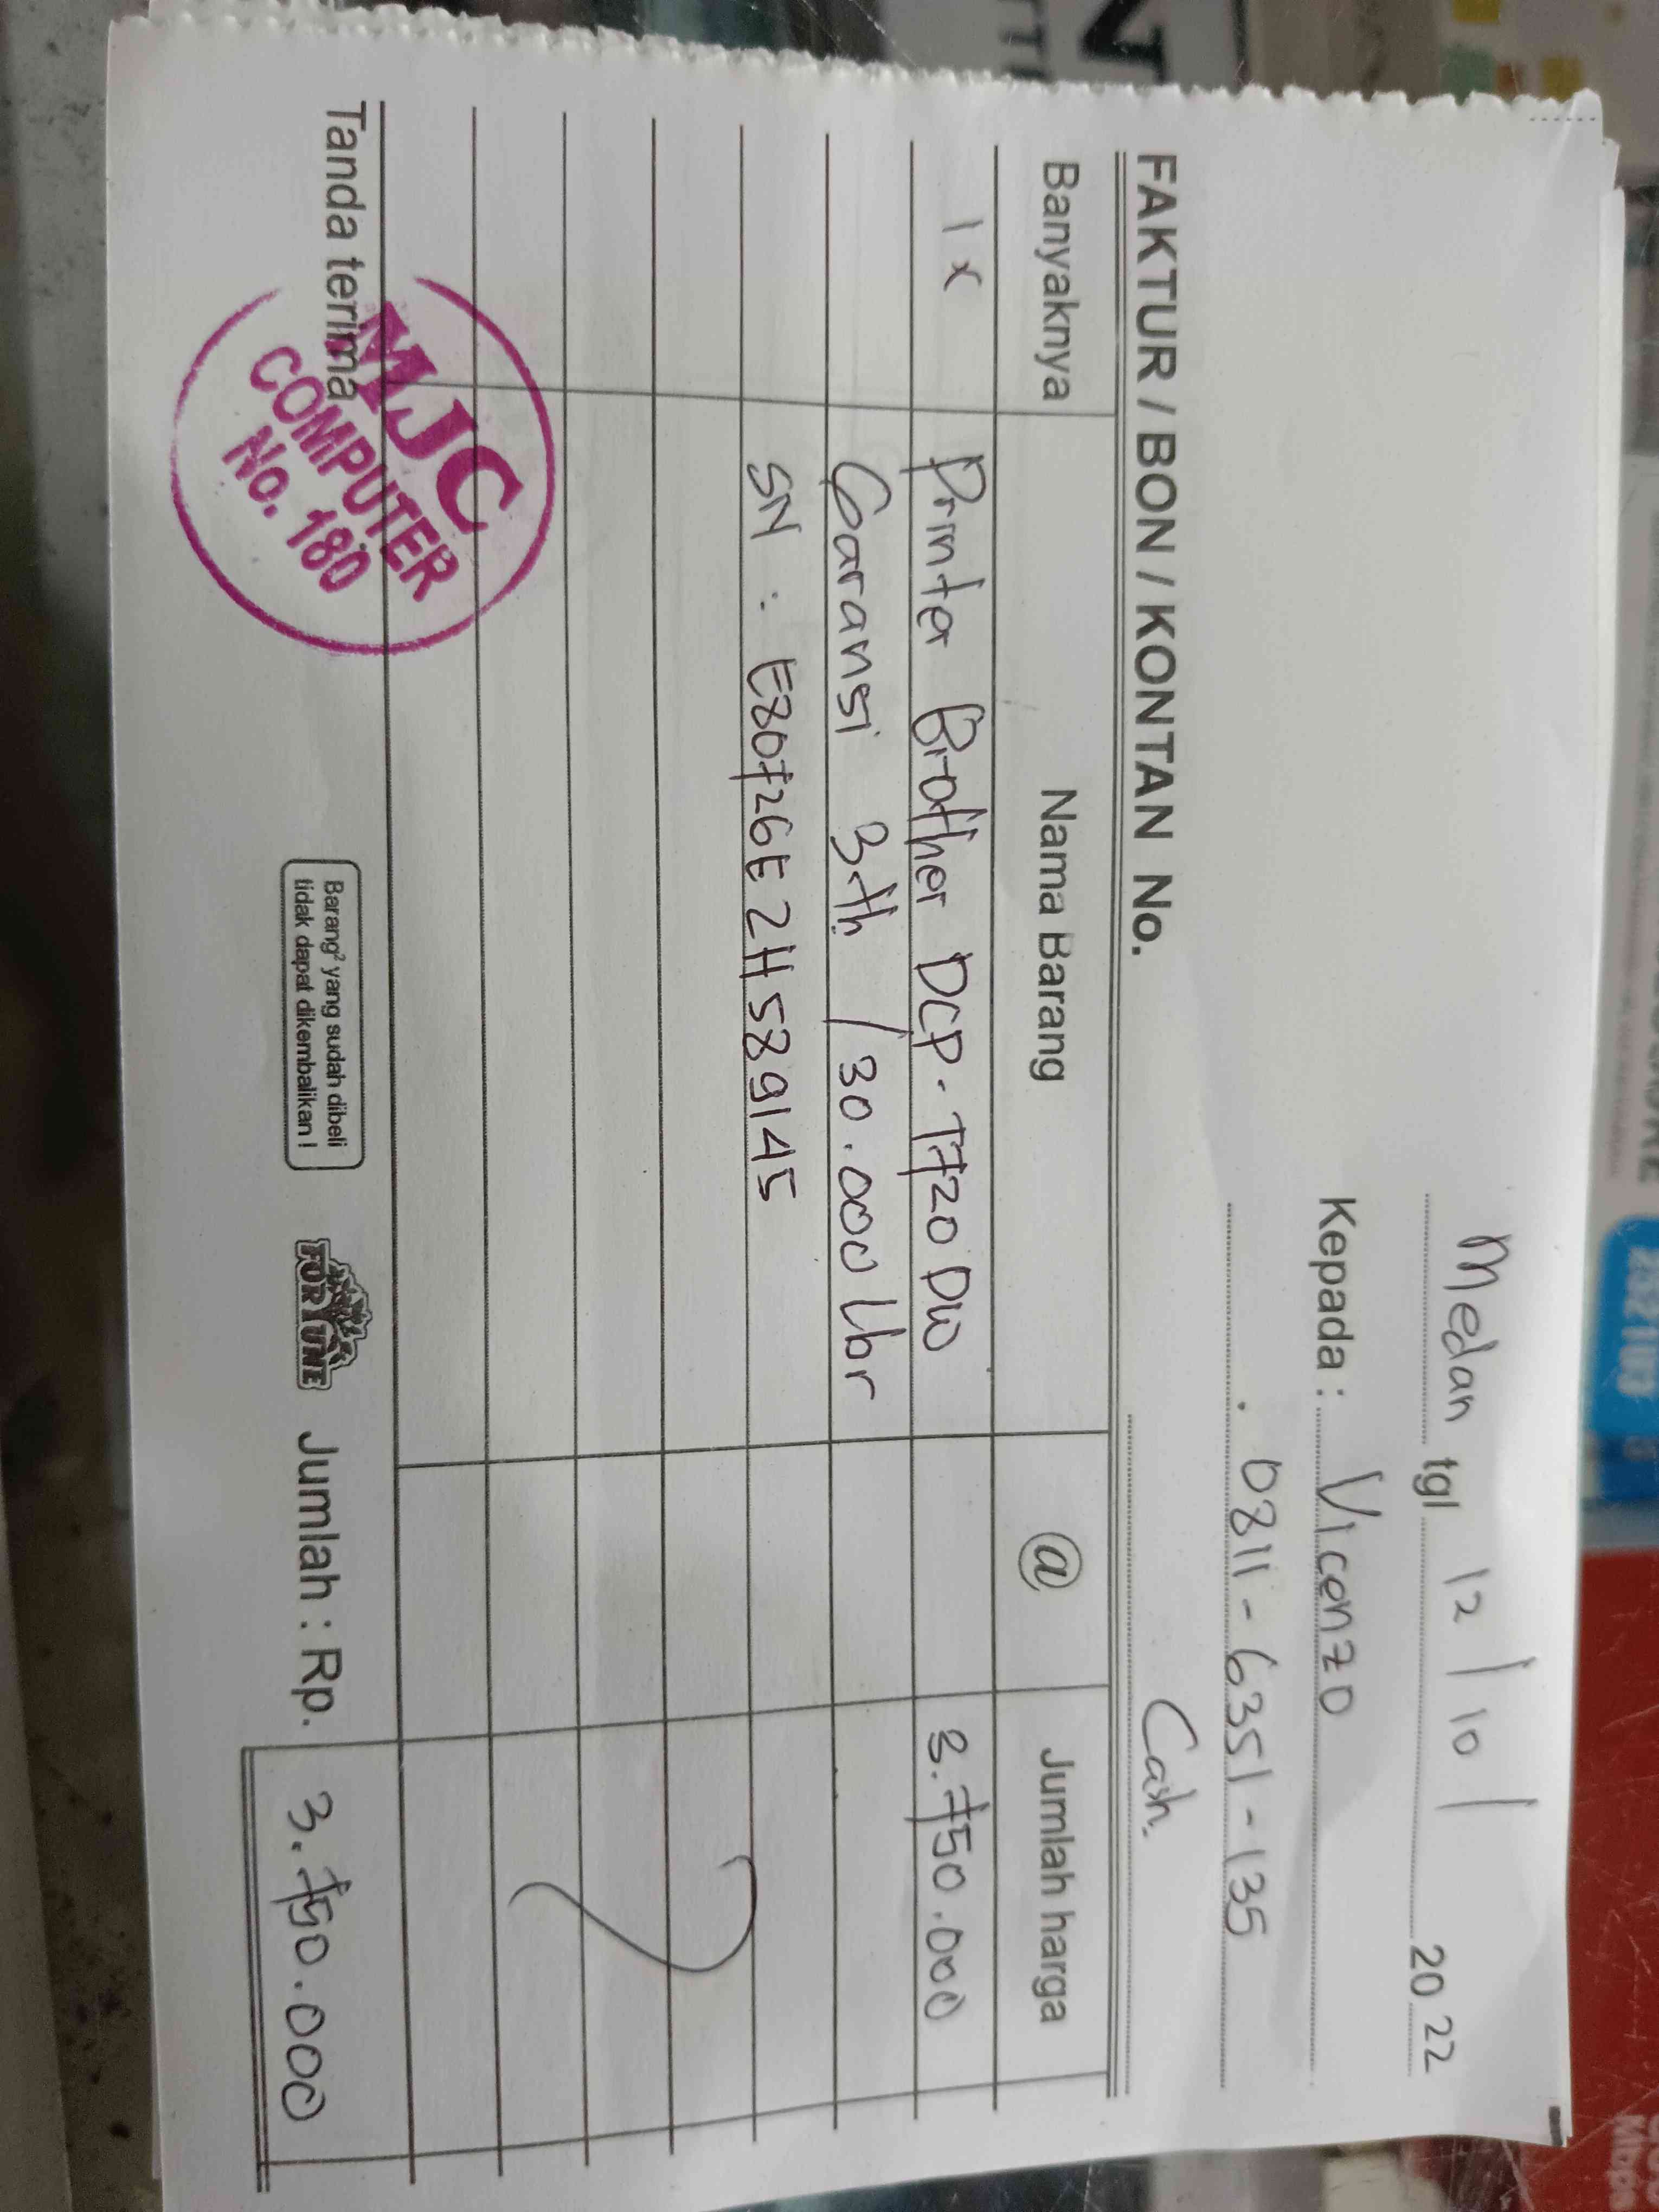 Medan tgl 12/10/ 2022
Kepada : Vicenzo
0811-6351-135
FAKTUR / BON / KONTAN No. Cash.
Banyaknya Nama Barang @ Jumlah harga
1x Printer Brother DCP. T720 DW 3.750.000
Garansi 3th / 30.000 lbr
SN : E80726E2H589145
Tanda terima
MJC
COMPUTER
No. 180
Barang² yang sudah dibeli
tidak dapat dikembalikan !
FORTUNE
Jumlah : Rp. 3.750.000